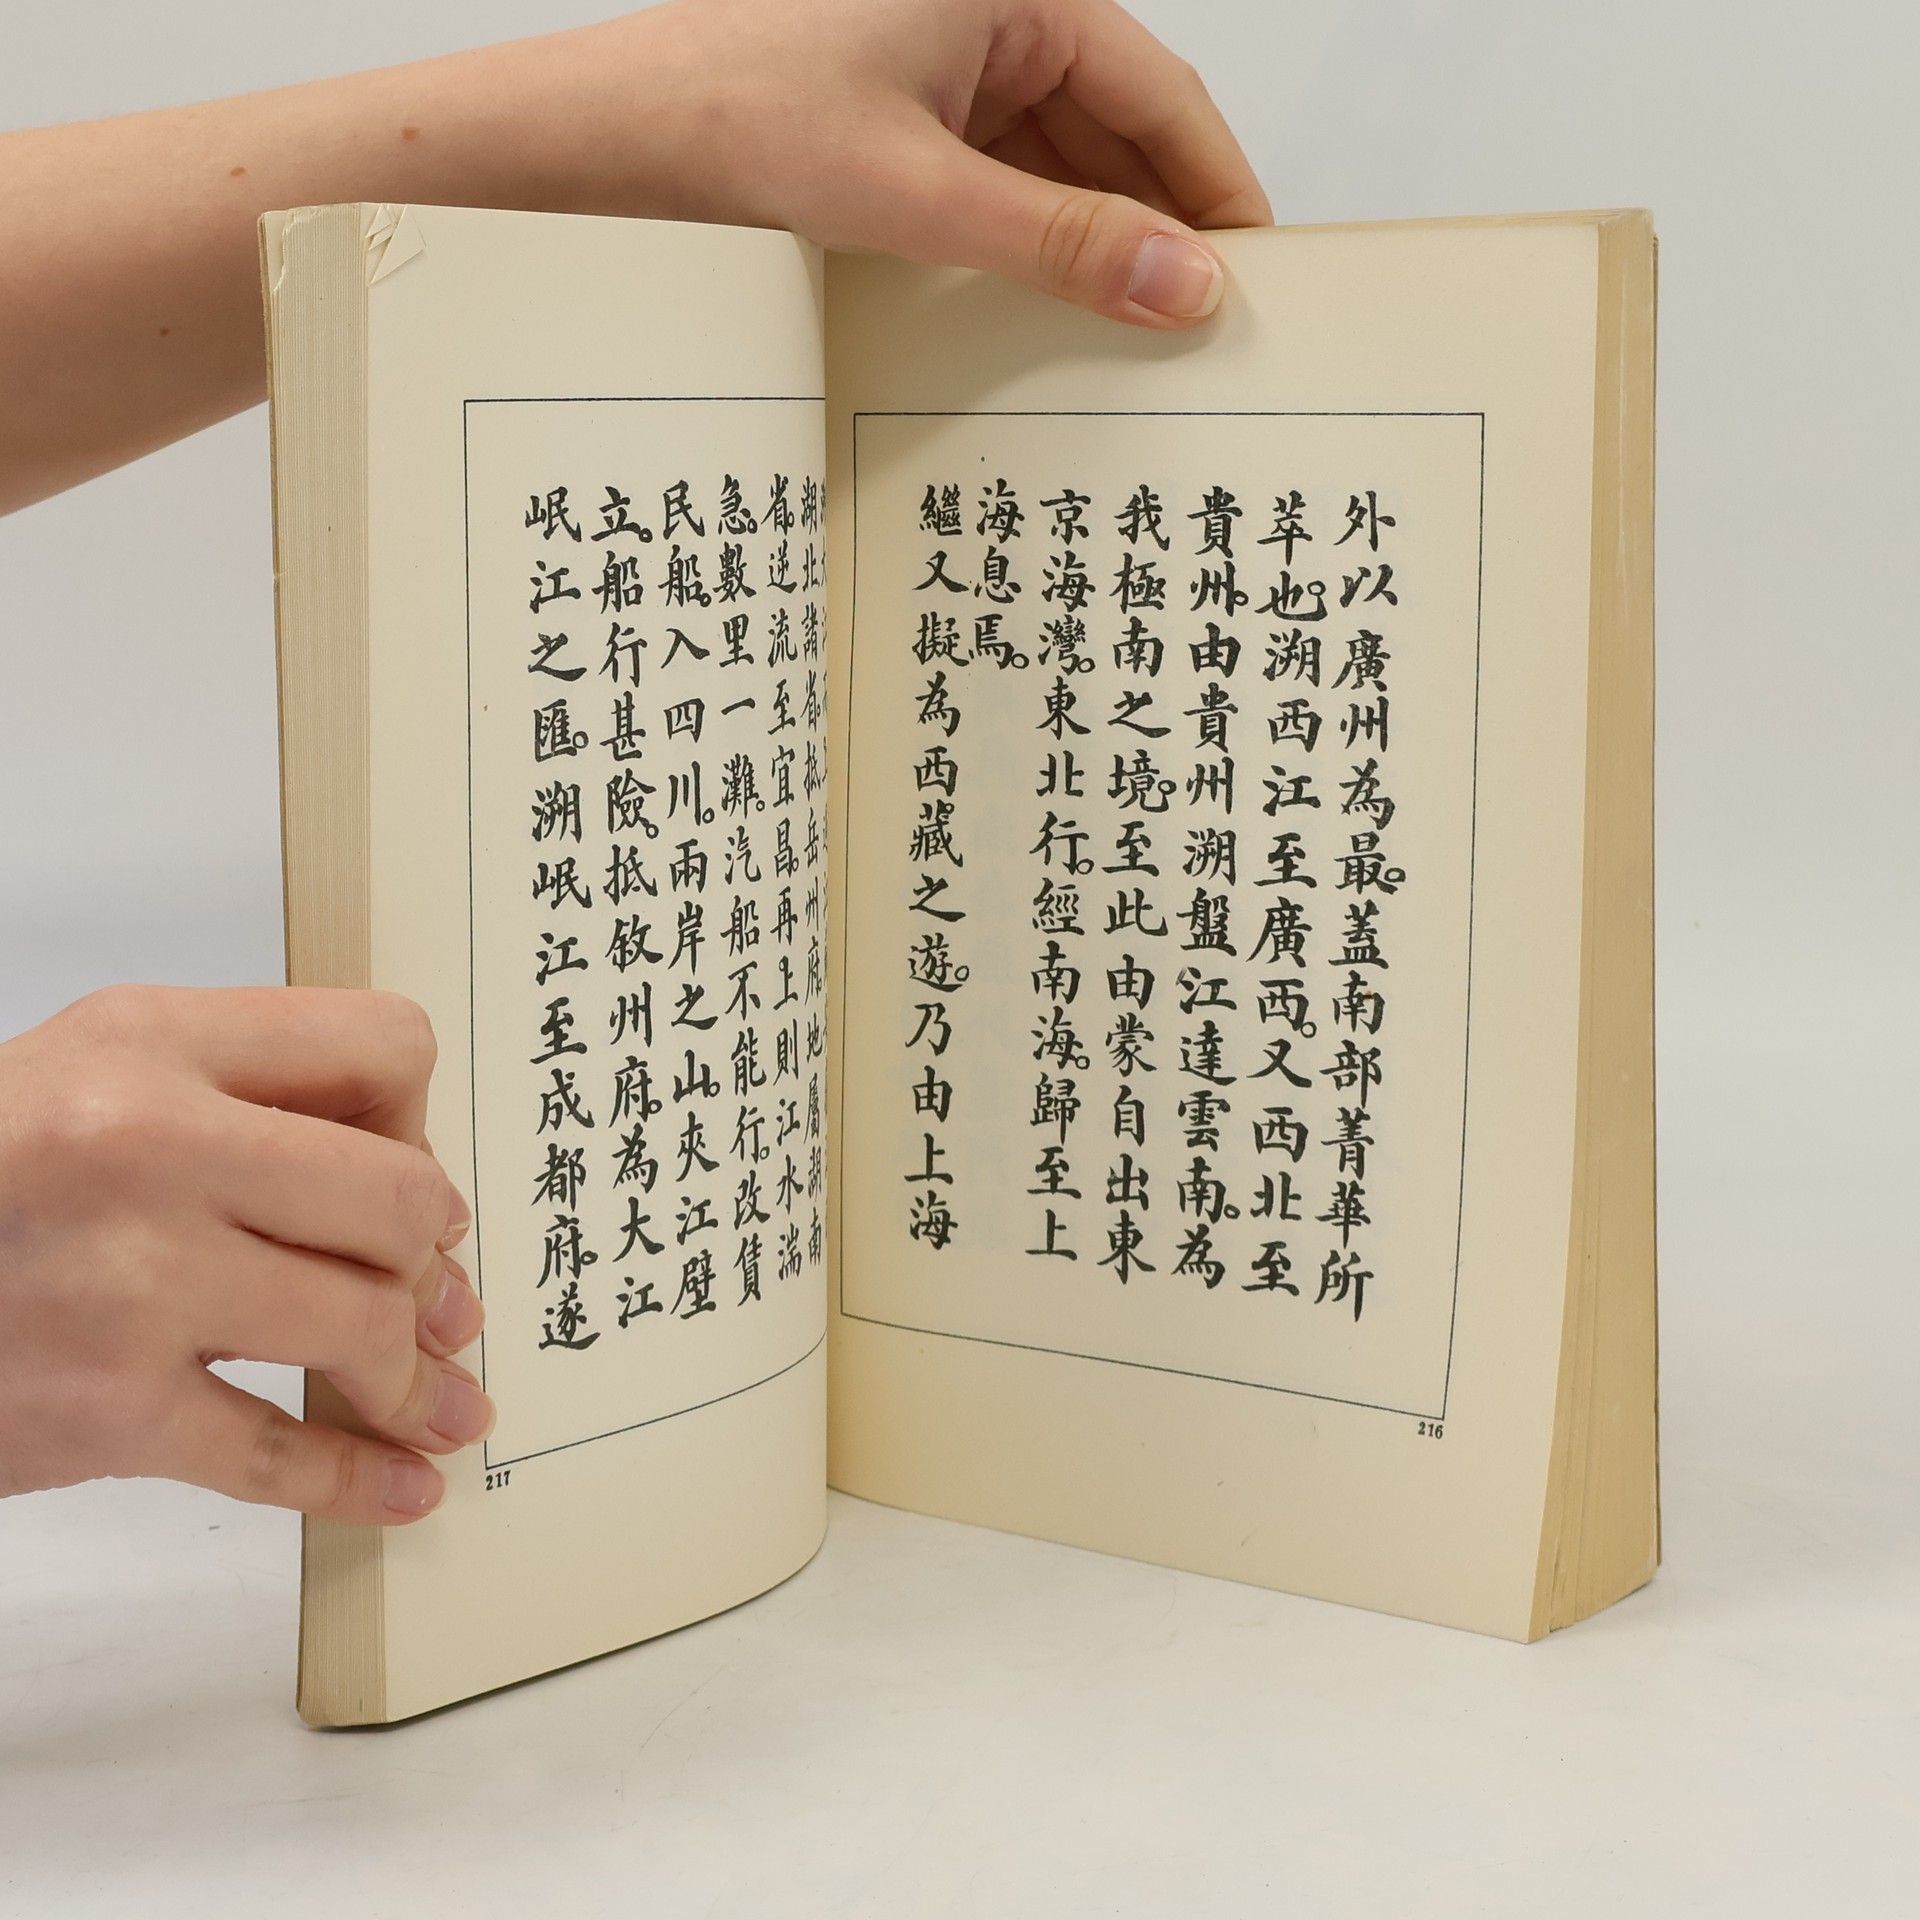 外以廣州為最。蓋南部菁華所
萃也。溯西江至廣西。又西北至
貴州。由貴州溯盤江達雲南。為
我極南之境。至此由蒙自出東
京海灣。東北行。經南海。歸至上
海息焉。
繼又擬為西藏之遊。乃由上海
216
湖北諸省。抵岳州府。地屬湖南
省。逆流至宜昌。再上則江水湍
急。數里一灘。汽船不能行。改賃
民船。入四川。兩岸之山。夾江壁
立。船行甚險。抵敘州府。為大江
岷江之匯。溯岷江至成都府。遂
217